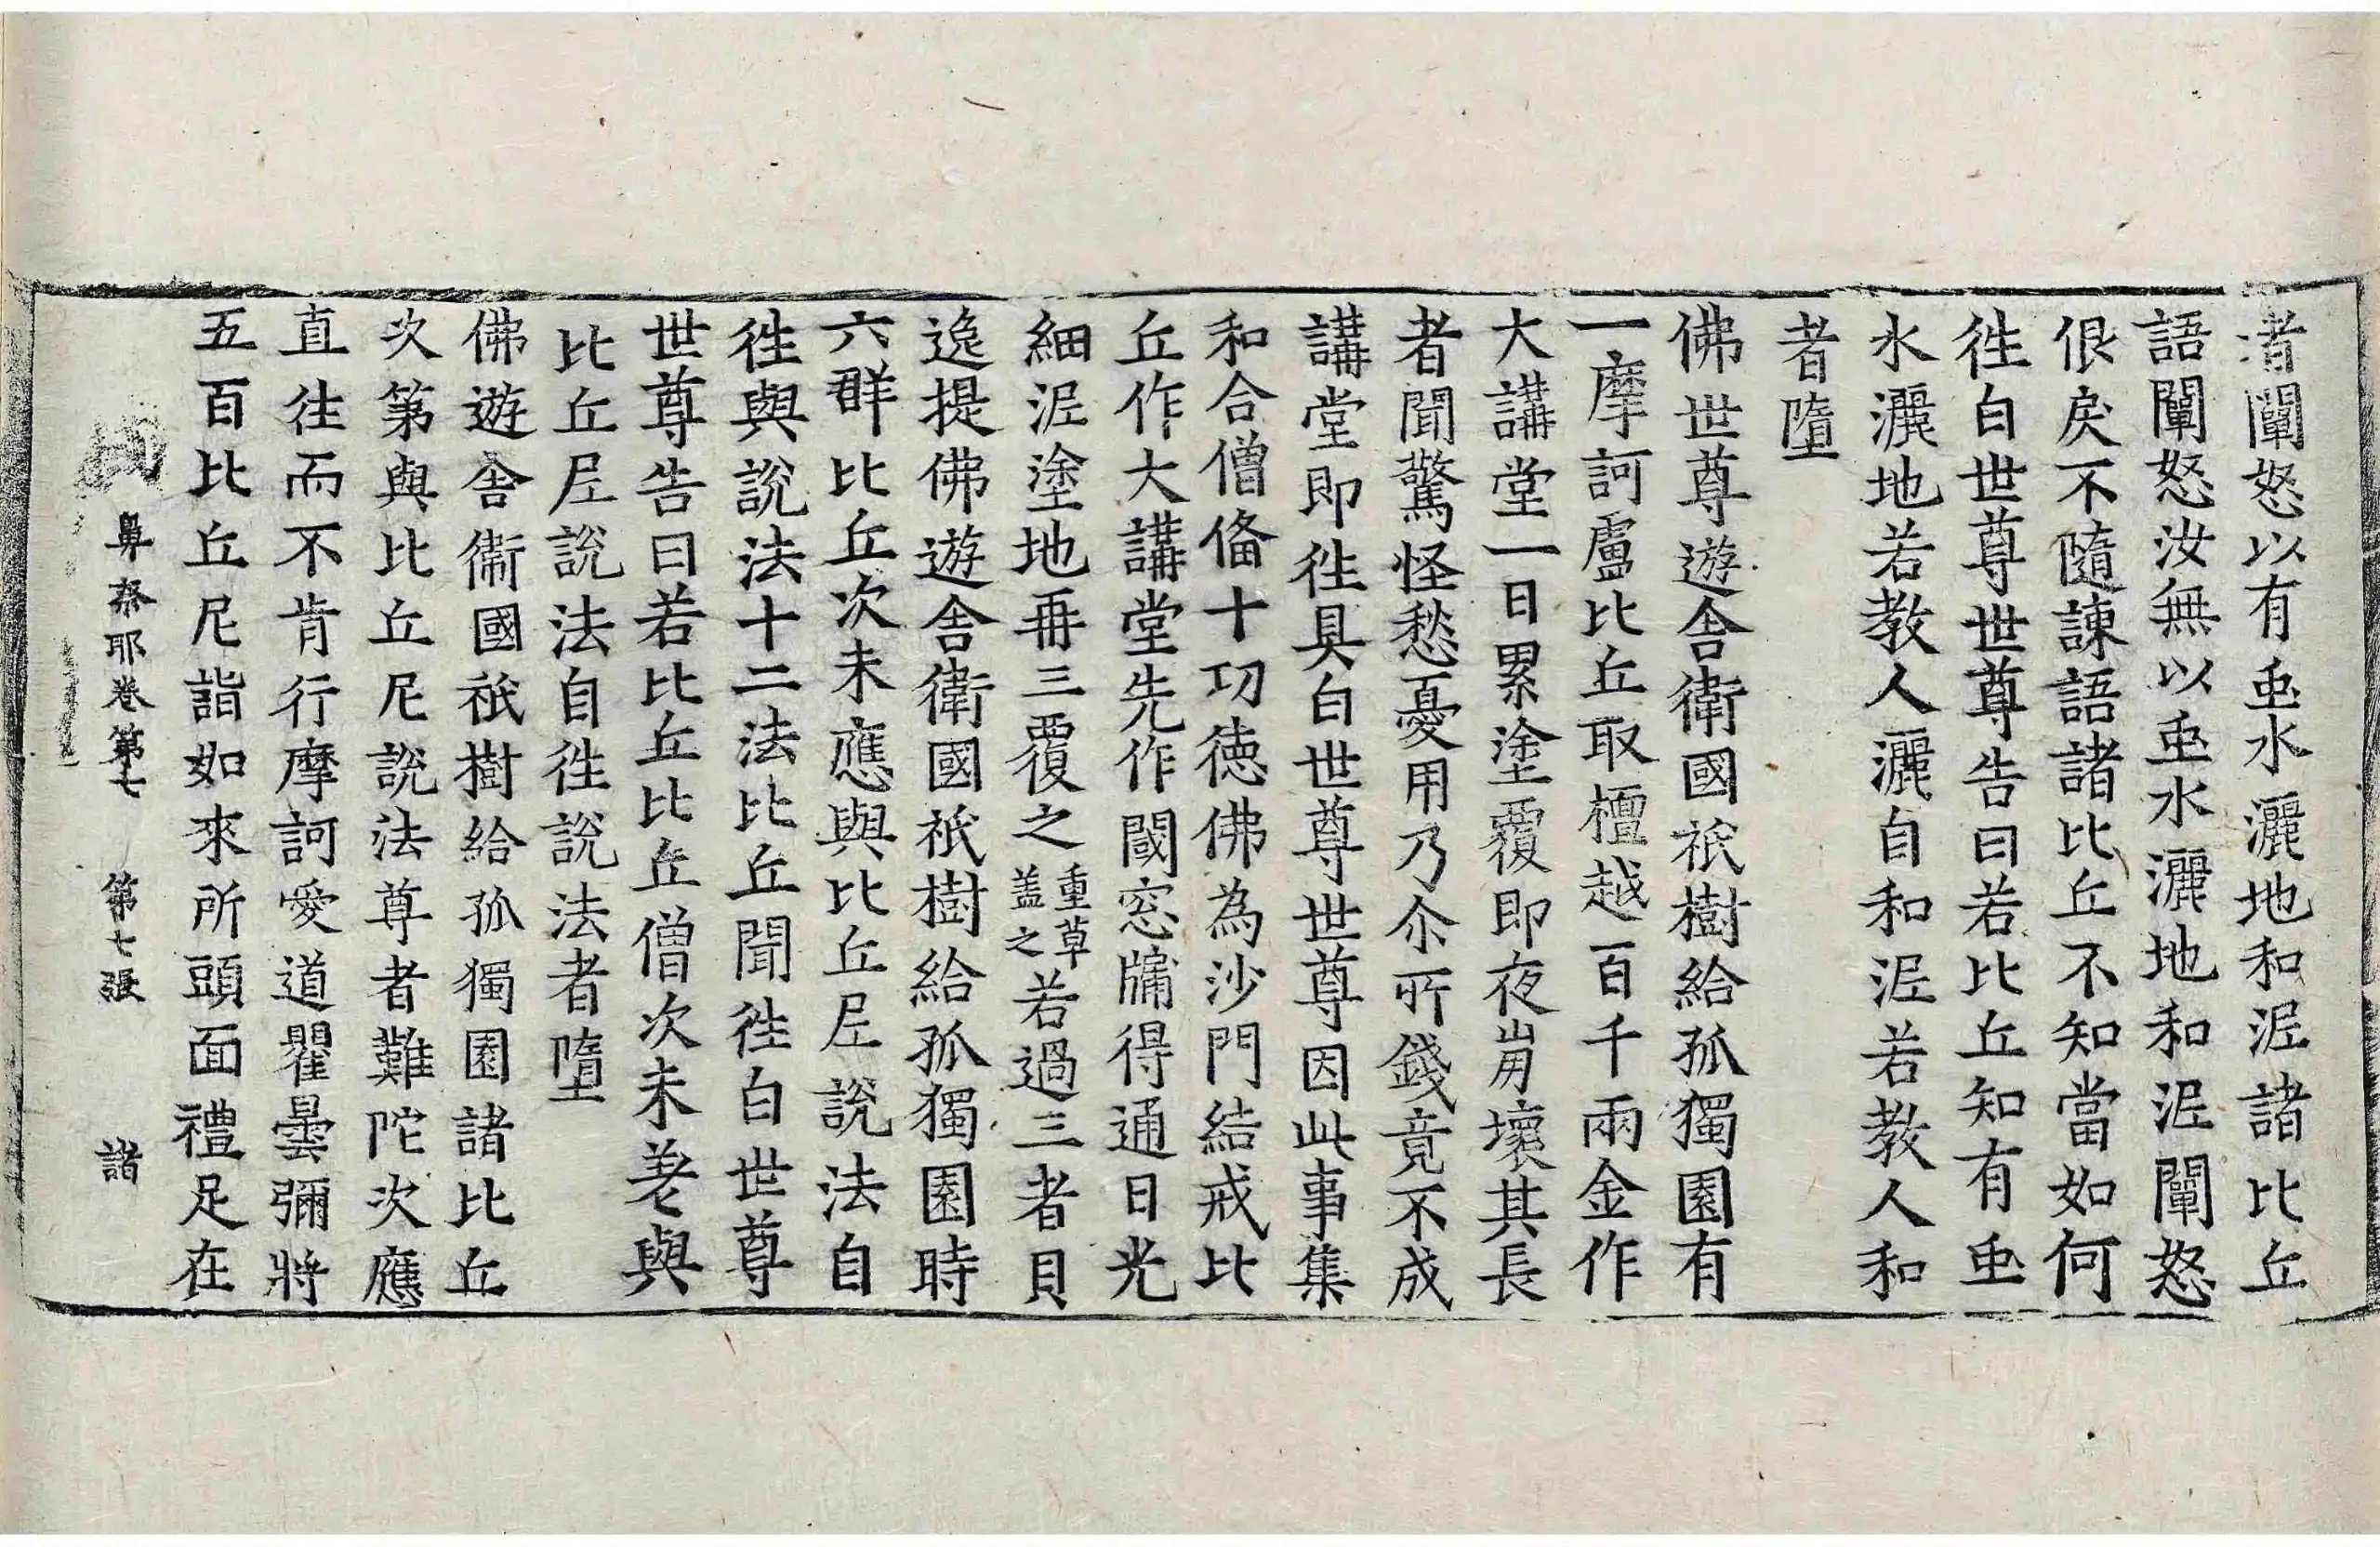 者闡怒以有䖝水灑地和泥諸比丘
語闡怒汝無以䖝水灑地和泥闡怒
佷戾不隨諫語諸比丘不知當如何
徃白世尊世尊告曰若比丘知有䖝
水灑地若教人灑自和泥若教人和
者墮
佛世尊遊舎衛國祇樹給孤獨園有
一摩訶盧比丘取檀越百千兩金作
大講堂一日累塗覆即夜崩壞其長
者聞驚怪愁憂用乃尒所錢竟不成
講堂即徃具白世尊世尊因此事集
和合僧俻十㓛徳佛為沙門結戒比
丘作大講堂先作闚窓牖得通日光
細泥塗地再三覆之重草盖之若過三者貝
逸提佛遊舎衛國祇樹給孤獨園時
六群比丘次未應與比丘尼說法自
徃與說法十二法比丘聞徃白世尊
世尊告曰若比丘比丘僧次未差與
比丘尼說法自徃說法者墮
佛遊舎衛國祇樹給孤獨園諸比丘
次第與比丘尼說法尊者難陀次應
直往而不肯行摩訶愛道瞿曇彌將
五百比丘尼詣如來所頭面禮足在
鼻奈耶卷第七 第七張 諸